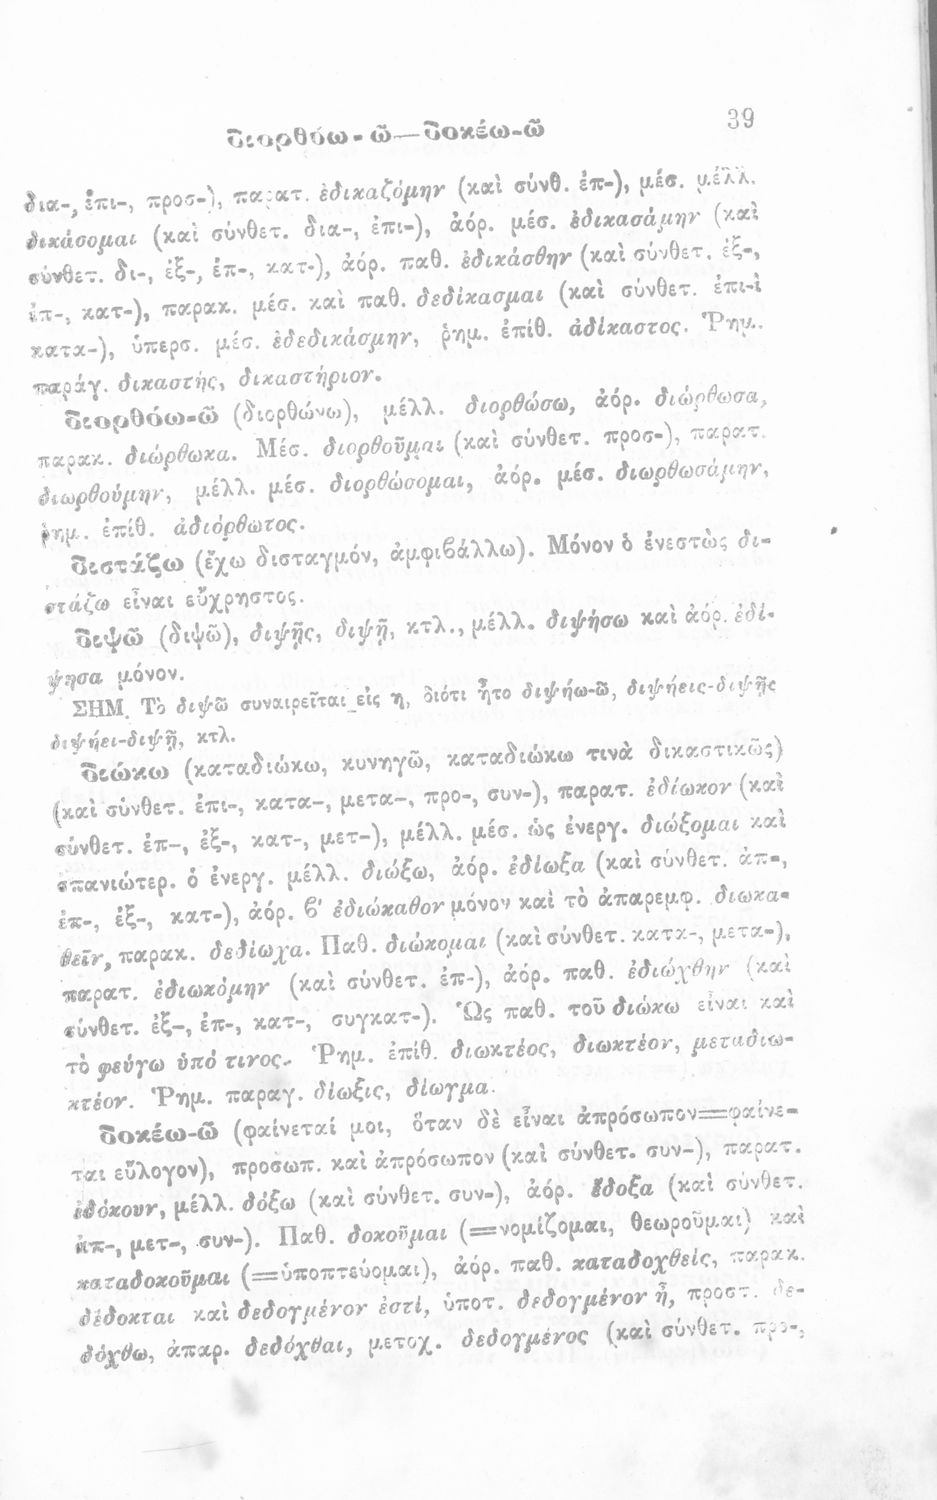 διορθόω-ῶ—δοκέω-ῶ 39
δια-, ἐπι-, προσ-), παρατ. ἐδικαζόμην (καὶ σύνθ. ἐπ-), μέσ. μέλλ.
δικάσομαι (καὶ σύνθετ. δια-, ἐπι-), ἀόρ. μέσ. ἐδικασάμην (καὶ
σύνθετ. δι-, ἐξ-, ἐπ-, κατ-), ἀόρ. παθ. ἐδικάσθην (καὶ σύνθετ. ἐξ-,
ἐπ-, κατ-), παρακ. μέσ. καὶ παθ. δεδίκασμαι (καὶ σύνθετ. ἐπι-ὶ
κατα-), ὑπερσ. μέσ. ἐδεδικάσμην, ῥημ. ἐπίθ. ἀδίκαστος. Ῥημ.
παράγ. δικαστής, δικαστήριον.
διορθόω-ῶ (διορθώνω), μέλλ. διορθώσω, ἀόρ. διώρθωσα,
παρακ. διώρθωκα. Μέσ. διορθοῦμαι (καὶ σύνθετ. προσ-), παρατ.
διωρθούμην, μέλλ. μέσ. διορθώσομαι, ἀόρ. μέσ. διωρθωσάμην,
ῥημ. ἐπίθ. ἀδιόρθωτος.
διστάζω (ἔχω δισταγμόν, ἀμφιβάλλω). Μόνον ὁ ἐνεστὼς δι-
στάζω εἶναι εὔχρηστος.
διψῶ (διψῶ), διψῇς, διψῇ, κτλ., μέλλ. διψήσω καὶ ἀόρ. ἐδί-
ψησα μόνον.
ΣΗΜ. Τὸ διψῶ συναιρεῖται εἰς η, διότι ἦτο διψήω-ῶ, διψήεις-διψῇς
διψήει-διψῇ, κτλ.
διώκω (καταδιώκω, κυνηγῶ, καταδιώκω τινὰ δικαστικῶς)
(καὶ σύνθετ. ἐπι-, κατα-, μετα-, προ-, συν-), παρατ. ἐδίωκον (καὶ
σύνθετ. ἐπ-, ἐξ-, κατ-, μετ-), μέλλ. μέσ. ὡς ἐνεργ. διώξομαι καὶ
σπανιώτερ. ὁ ἐνεργ. μέλλ. διώξω, ἀόρ. ἐδίωξα (καὶ σύνθετ. ἀπ-,
ἐπ-, ἐξ-, κατ-), ἀόρ. β' ἐδιώκαθον μόνον καὶ τὸ ἀπαρεμφ. διωκα-
θεῖν, παρακ. δεδίωχα. Παθ. διώκομαι (καὶ σύνθετ. κατα-, μετα-),
παρατ. ἐδιωκόμην (καὶ σύνθετ. ἐπ-), ἀόρ. παθ. ἐδιώχθην (καὶ
σύνθετ. ἐξ-, ἐπ-, κατ-, συγκατ-). Ὡς παθ. τοῦ διώκω εἶναι καὶ
τὸ φεύγω ὑπό τινος. Ῥημ. ἐπίθ. διωκτέος, διωκτέον, μεταδιω-
κτέον. Ῥημ. παραγ. δίωξις, δίωγμα.
δοκέω-ῶ (φαίνεταί μοι, ὅταν δὲ εἶναι ἀπρόσωπον=φαίνε-
ται εὔλογον), προσωπ. καὶ ἀπρόσωπον (καὶ σύνθετ. συν-), παρατ.
ἐδόκουν, μέλλ. δόξω (καὶ σύνθετ. συν-), ἀόρ. ἔδοξα (καὶ σύνθετ.
ἀπ-, μετ-, συν-). Παθ. δοκοῦμαι (=νομίζομαι, θεωροῦμαι) καὶ
καταδοκοῦμαι (=ὑποπτεύομαι), ἀόρ. παθ. καταδοχθείς, παρακ.
δέδοκται καὶ δεδογμένον ἐστί, ὑποτ. δεδογμένον ᾖ, προστ. δε-
δόχθω, ἀπαρ. δεδόχθαι, μετοχ. δεδογμένος (καὶ σύνθετ. προ-,